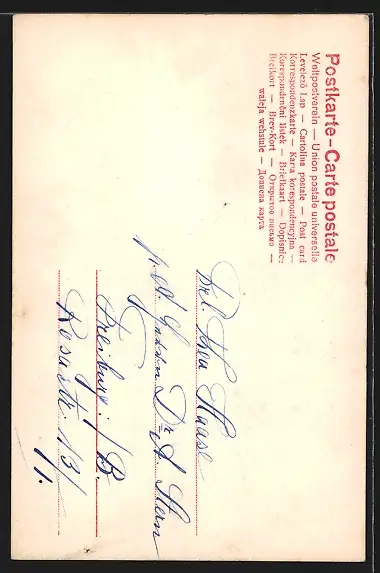 Postkarte – Carte postale
Weltpostverein — Union postale universelle
Levelező Lap — Cartolina postale — Post card
Korrespondenzkarte — Karta korespondencyjna —
Korespondenční lístek — Briefkaart — Dopisnice
Brefkort — Brev-Kort — Открытое письмо —
Дописна карта
Frl. Thea Haase
p. Ad. Herrn Dr. A. Stern
Freiburg i/B.
Rosastr. 13/